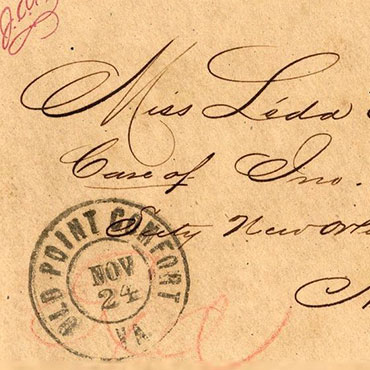 Miss Léda
Care of Jno.
New Orl
OLD POINT COMFORT
NOV
24
VA